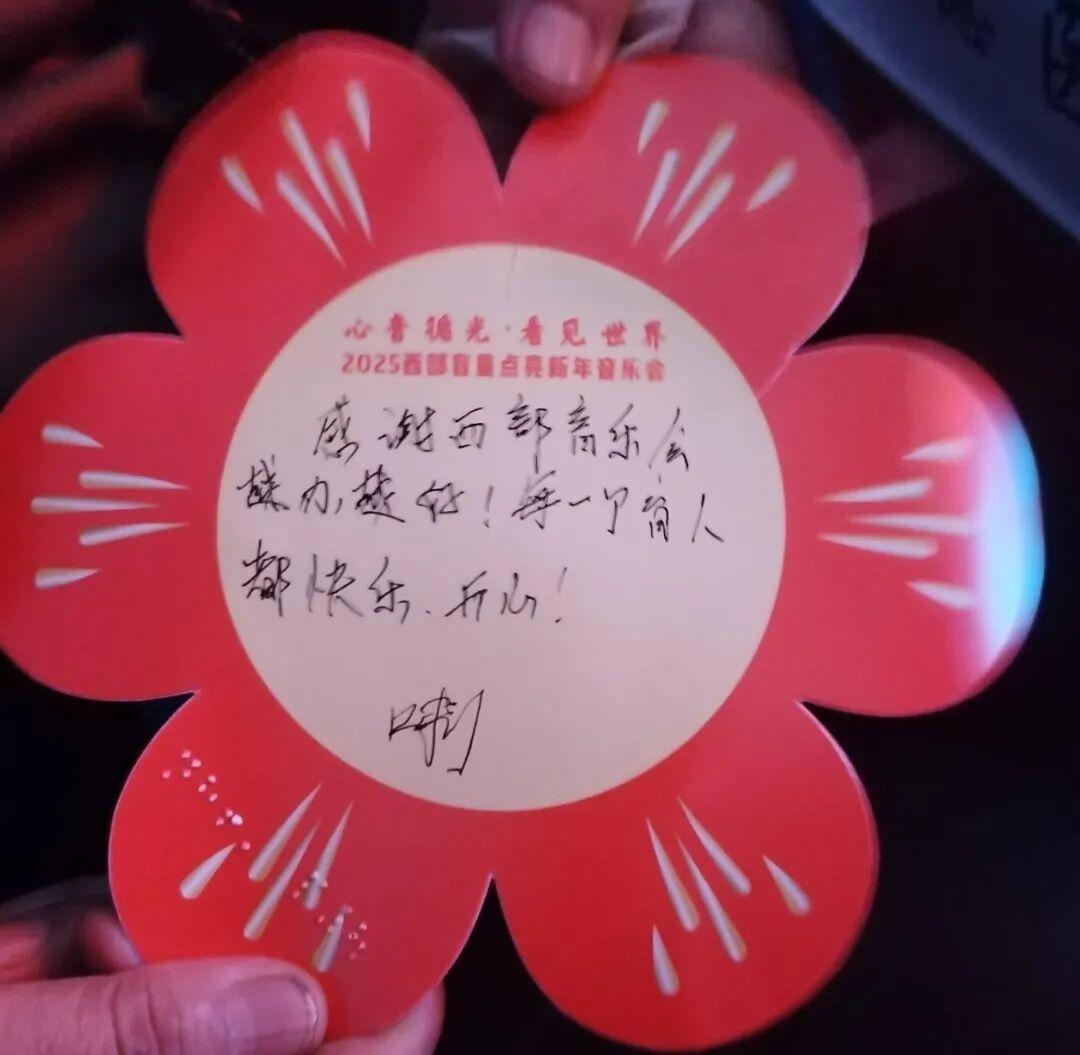 心音循光·看见世界
2025西部盲童点亮新年音乐会
感谢西部音乐会
越办越好！每一个盲人
都快乐、开心！